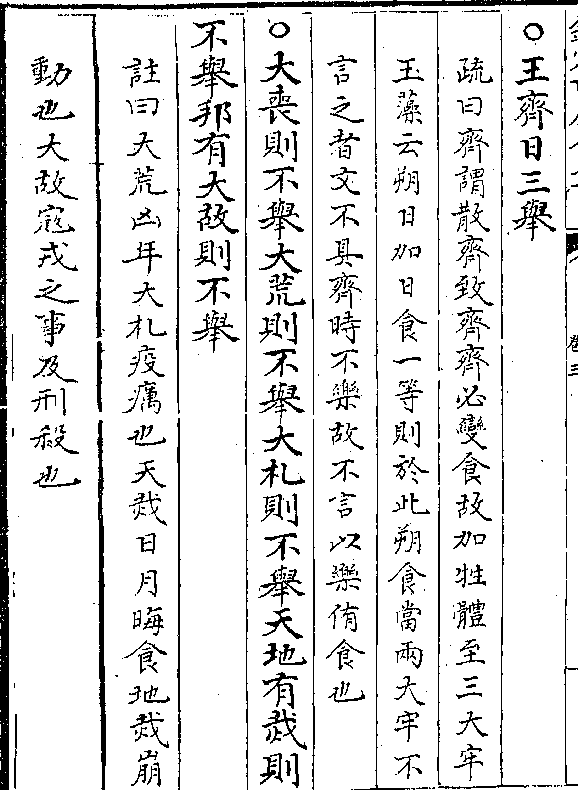 ○王齊日三舉
疏曰齊謂散齊致齊齊必變食故加牲體至三大牢
玉藻云朔日加日食一等則於此朔食當兩大牢不
言之者文不具齊時不樂故不言以樂侑食也
○大喪則不舉大荒則不舉大札則不舉天地有烖則
不舉邦有大故則不舉
註曰大荒凶年大札疫癘也天烖日月晦食地烖崩
動也大故寇戎之事及刑殺也